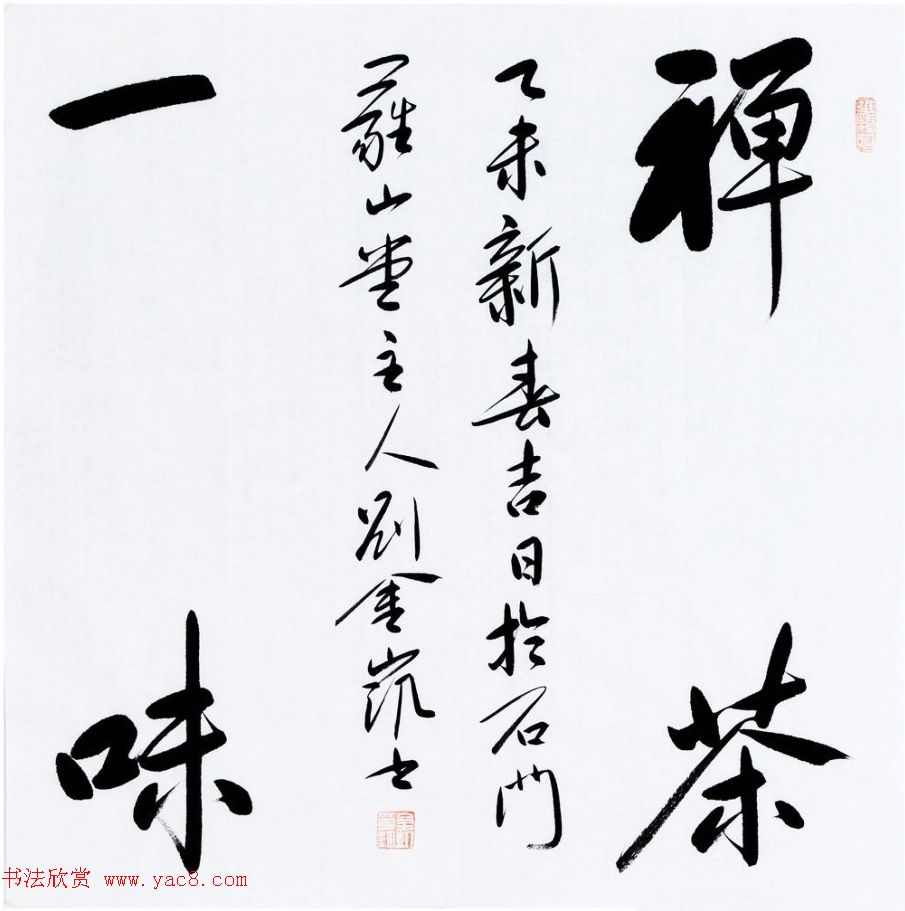 禅茶
乙未新春吉日於石門
山堂主人劉金凱書
一味
书法欣赏 www.yac8.com